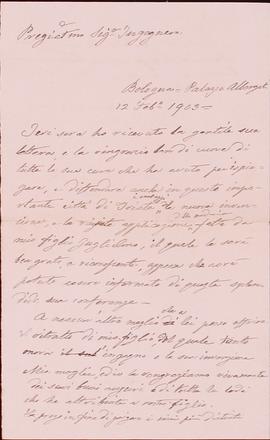 Pregiatmo Sigr Ingegnere
Bologna = Palazzo Albergati
12 Febo 1903 =
Ieri sera ho ricevuto la gentile sua
lettera, e la ringrazio ben di cuore di
tutte le sue cure che ha avuto per ispie-
gare, e diffondere anche in questa impor-
tante città di la nuova inven-
zione, e la applicazione, fatta da
mio figlio Guglielmo, il quale le sarà
ben grato, e riconoscente, appena che avrà
potuto essere informato di quella splen-
dida sua conferenza =
A nessun altro meglio che a lei posso offrire
il ritratto di mio figlio, del quale tanto
onora il ingegno e la sua invenzione
Mia moglie, ed io la ringraziamo vivamente
di suoi buoni auguri e di tutte le lodi
che ha attribuito a nostro figlio.
La prego infine di gradire i miei più distinti